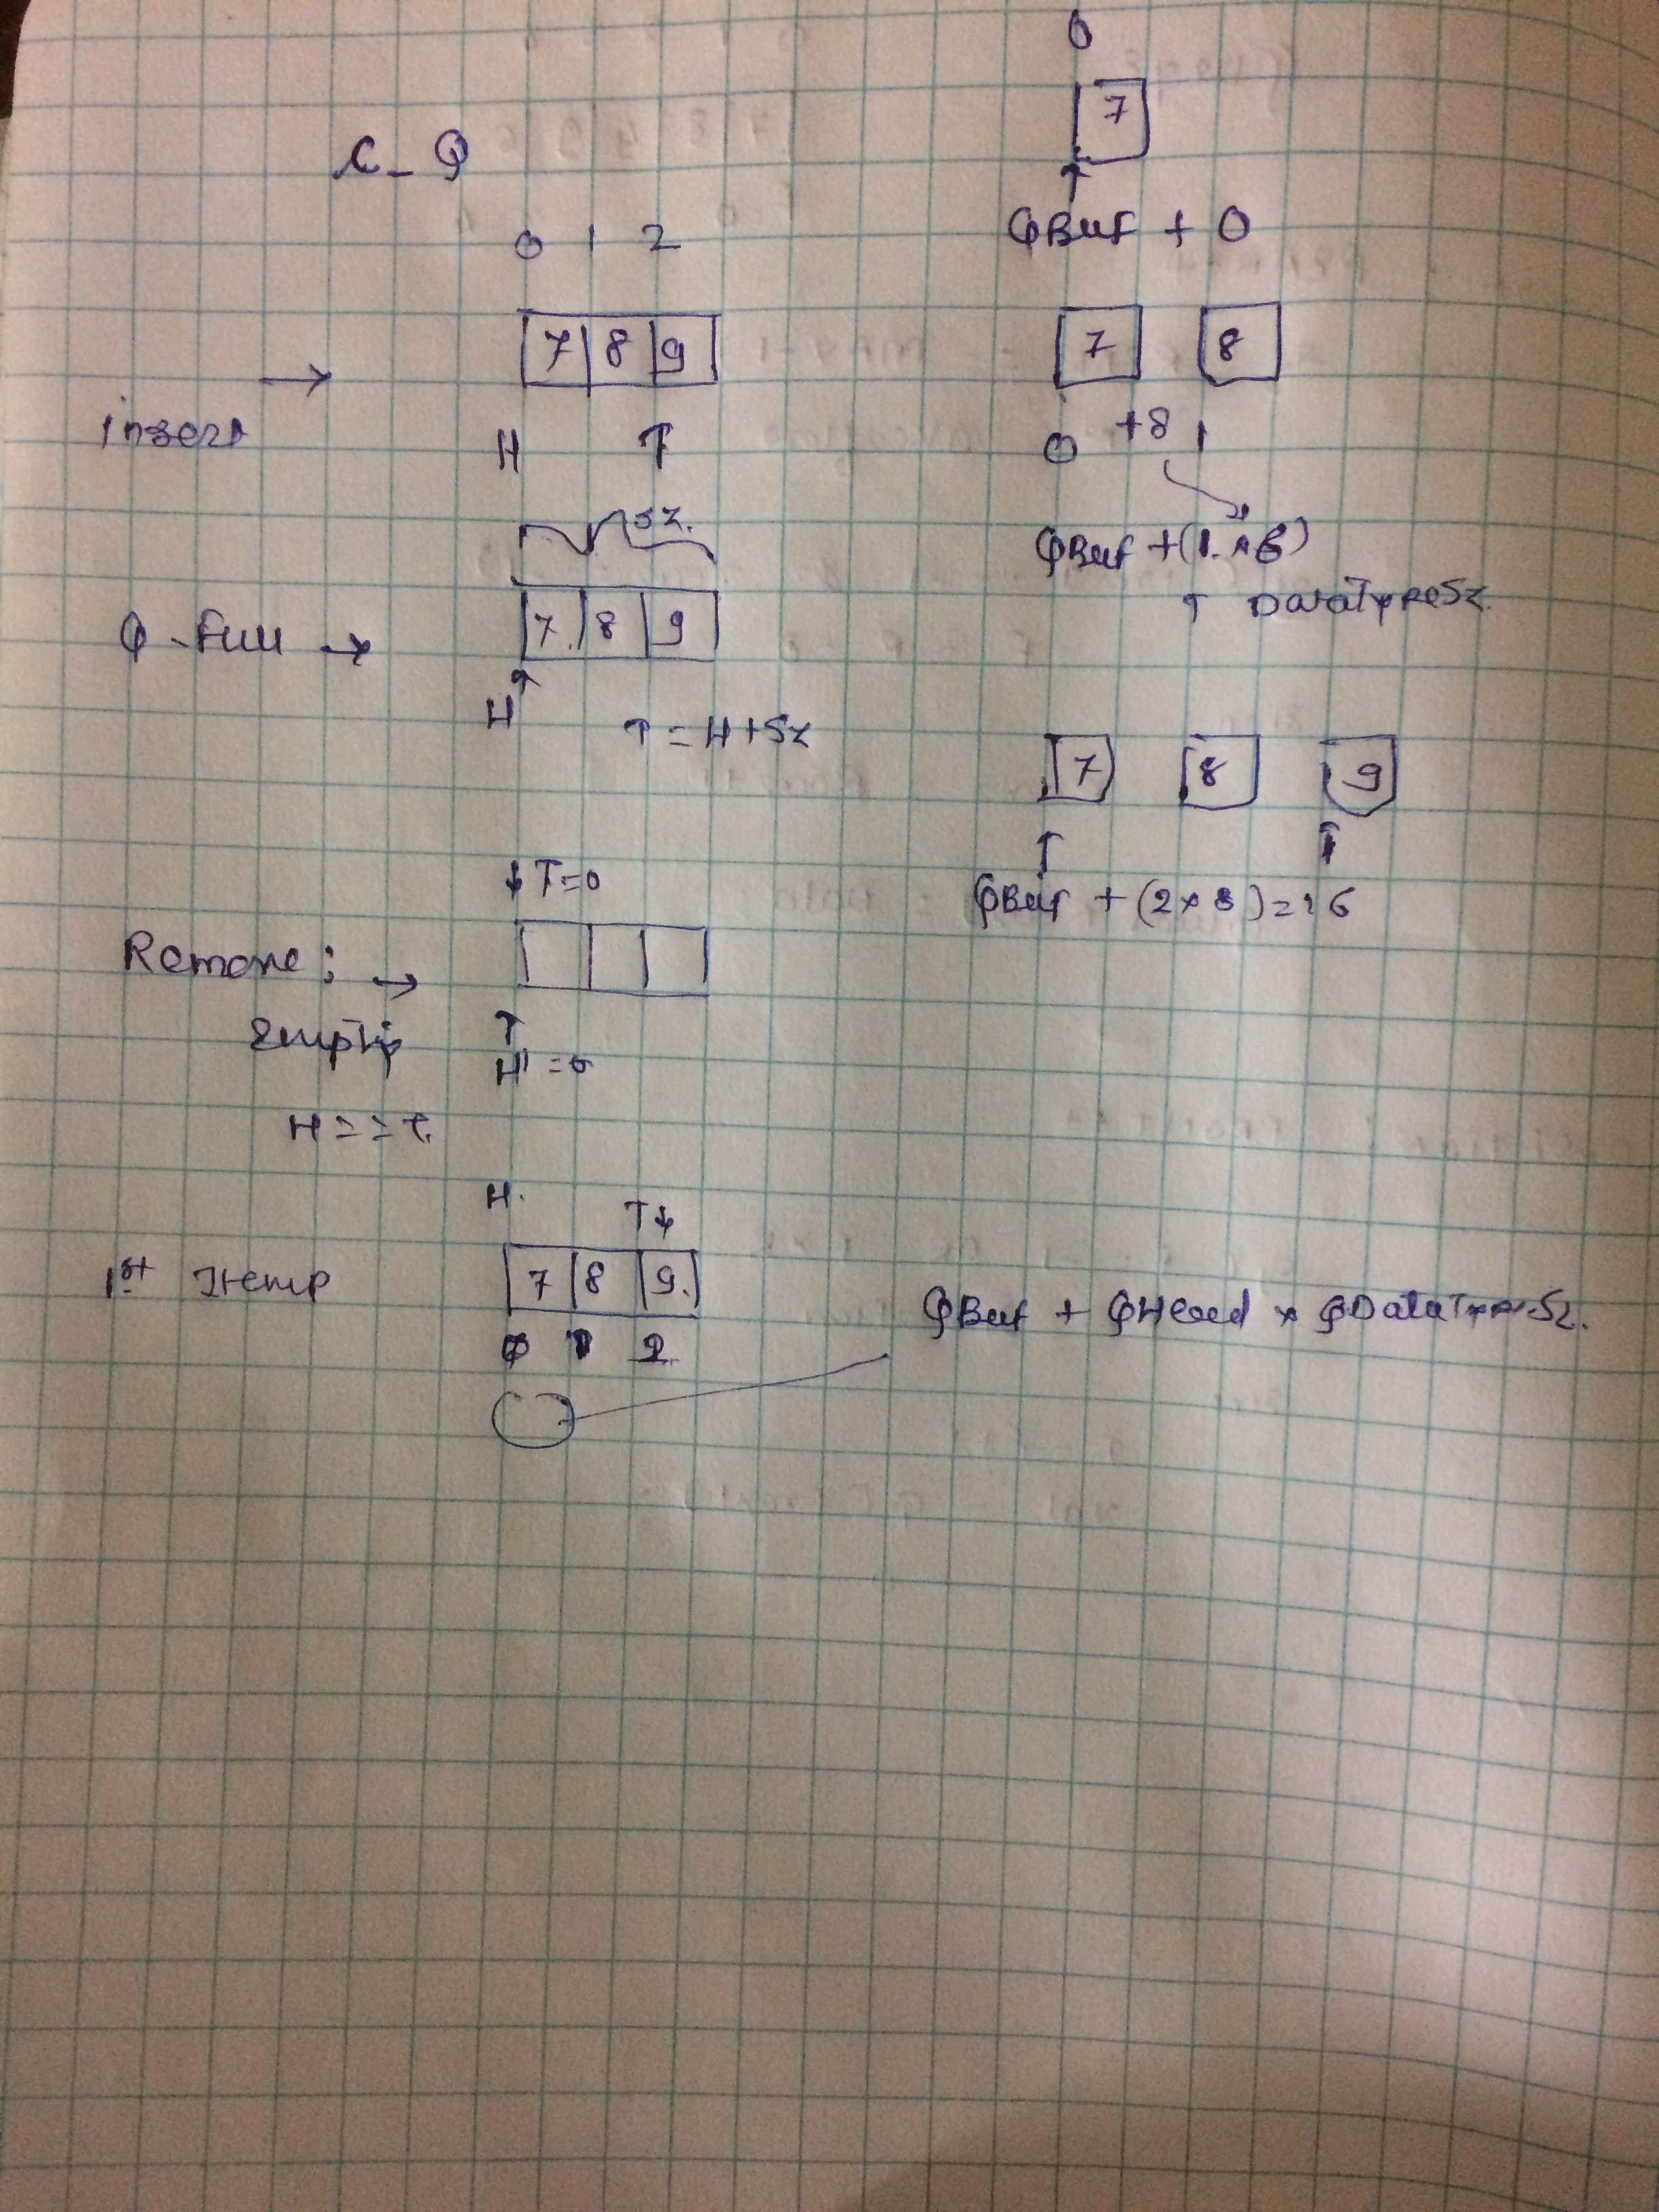 C_Q
0 1 2
7 8 9
insert →
H T
Sz.
Q-Full →
7 8 9
H
T = H+Sz
↓ T=0
Remove : →
Empty
H = 0
H == T.
H. T↓
1st Itemp
7 8 9.
0 1 2
0
7
QBuf + 0
7 8
0 +8 1
QBuf + (1 × 8)
DataTypeSz.
7 8 9
QBuf + (2 × 8) = 16
QBuf + QHead × QDataTypeSz.